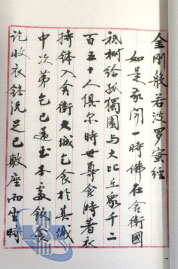 金剛般若波羅蜜經
如是我聞一時佛在舍衛國
祇樹給孤獨園與大比丘眾千二
百五十人俱尔時世尊食時著衣
持鉢入舍衛大城乞食於其城
中次第乞已還至本處飯食
訖收衣鉢洗足已敷座而坐時